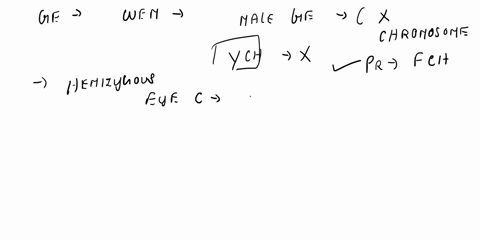 GE → WEN → MALE GE → C X
CHRONOSOME
Y CH → X ✓ PR → FCH
→ HEMIZYGOUS
EYE C →